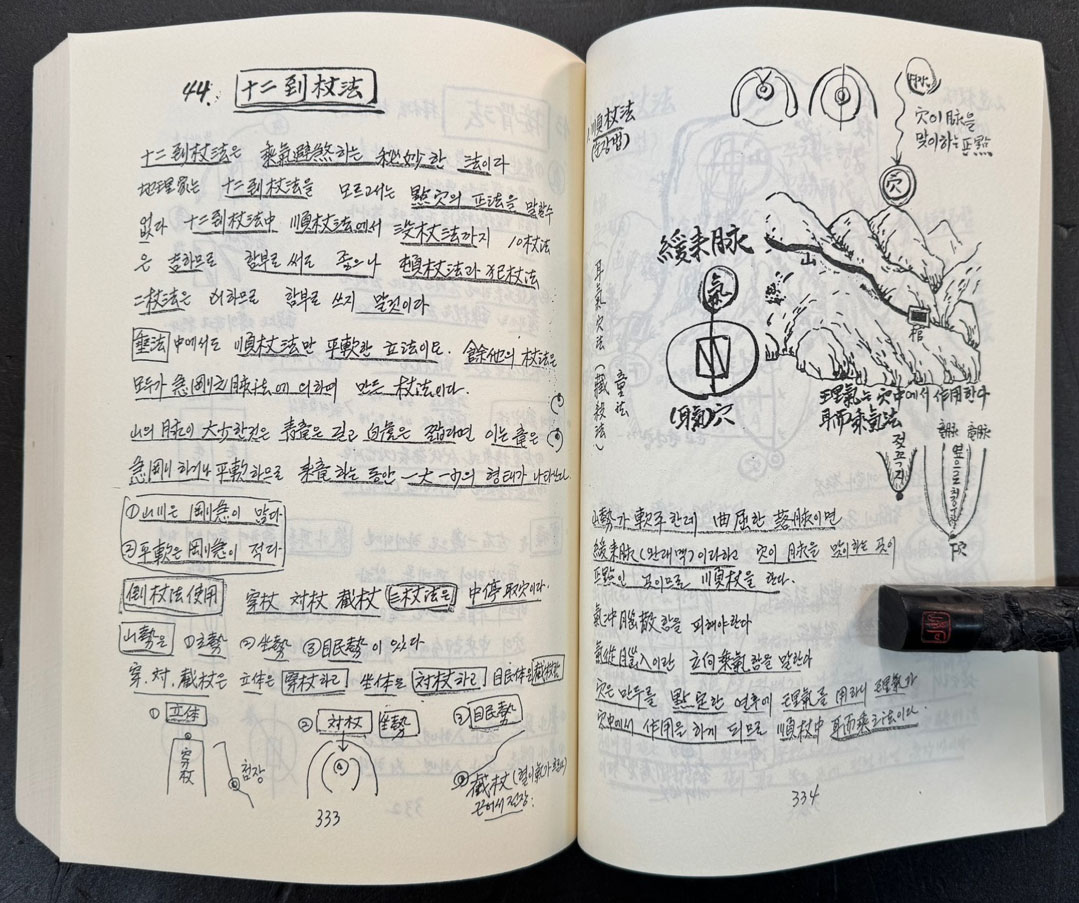 44. 十二到杖法
十二到杖法은 乘氣避煞하는 秘妙한 法이라
地理家는 十二到杖法을 모르고서는 點穴의 正法을 말할수
없다 十二到杖法中 順杖法에서 没杖法까지 10杖法
은 吉하므로 함부로 써도 좋으나 頓杖法과 犯杖法
二杖法은 凶하므로 함부로 쓰지 말것이다
中에서도 順杖法만 平軟한 立法이요. 餘他의 杖法은
모두가 急剛之脉法에 의하여 만든 杖法이다.
山의 脉이 大小한것은 青龍은 길고 白虎는 짧다면 이는 龍은
急剛하거나 平軟하므로 来龍하는 동안 一大一小의 형태가 나타난다
①山川은 剛急이 많다
②平軟은 剛急이 적다
倒杖法使用 穿杖 対杖 截杖 三杖法은 中停取穴이다.
山勢은 ①立勢 ②坐勢 ③眠勢이 있다
穿. 対. 截杖은 立体은 穿杖하고 坐体은 対杖하고 眠体은 截杖함
① 立体
穿杖
첨장
② 対杖 坐勢
③ 眠勢
截杖
333
順杖法
穴이 脉을
맞이하는 正點
穴
緩来脉
氣
穴
耳氣穴法
山
棺
理氣는 穴中에서 作用한다
耳而乘氣法
젖꼭지
山勢가 軟平한데 曲屈한 落脉이면
緩来脉(만래맥)이라하고 穴이 脉을 맞이하는 곳이
正點인 곳이므로 順杖을 한다.
氣冲脳散함을 피해야한다
氣從 入이란 立向乘氣함을 말한다
穴은 만두를 點定한 연후에 理氣를 用하니 理氣가
穴中에서 作用을 하게 되므로 順杖中 耳而乘之法이다.
334